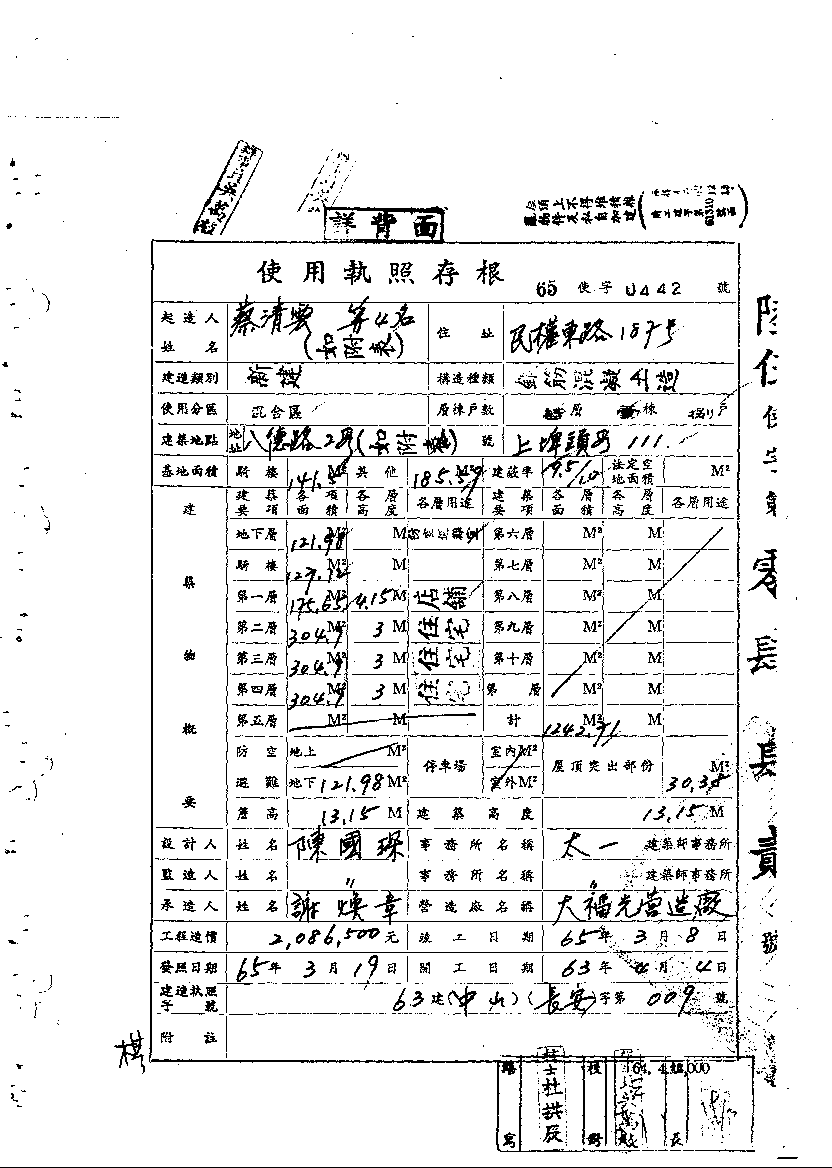 詳背面
使用執照存根
65 使字 0442 號
起造人姓名 蔡清雲 等4名 (如附表) 住址 民權東路1875
建造類別 新建 構造種類 鋼筋混凝土造
使用分區 混合區 層棟戶數 層 棟 戶
建築地點 地址 八德路2段(如附表) 號 上埤頭 111
基地面積 騎樓 141.5M² 其他 185.59M² 建蔽率 法定空地面積 M²
建築物概要
建築要項 各項面積 各層高度 各層用途 建築要項 各層面積 各層高度 各層用途
地下層 121.98M² M 第六層 M² M
騎樓 127.12M² M 第七層 M² M
第一層 175.65M² 4.15M 店舖 第八層 M² M
第二層 304.9M² 3M 住宅 第九層 M² M
第三層 304.9M² 3M 住宅 第十層 M² M
第四層 304.9M² 3M 住宅 第 層 M² M
第五層 M² M 計 1242.91M² M
防空避難 地上 M² 地下 121.98M² 停車場 室內M² 室外M² 屋頂突出部份 30.38M²
簷高 13.15M 建築高度 13.15M
設計人 姓名 陳國琛 事務所名稱 太一 建築師事務所
監造人 姓名 〃 事務所名稱 〃 建築師事務所
承造人 姓名 謝煥章 營造廠名稱 大福光營造廠
工程造價 2,086,500元 竣工日期 65年3月8日
發照日期 65年3月19日 開工日期 63年4月4日
建造執照字號 63建(中山)(長安)字第009號
附註
棋
繕寫 技士杜拱辰 校對 長